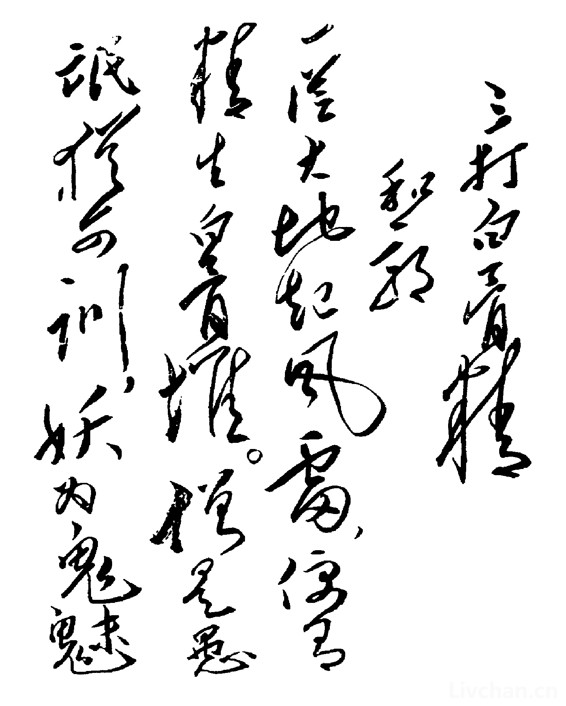 三打白骨精
和郭
一從大地起风雷，便有
精生白骨堆。僧是愚
氓猶可訓，妖为鬼魅
Livchan.cn